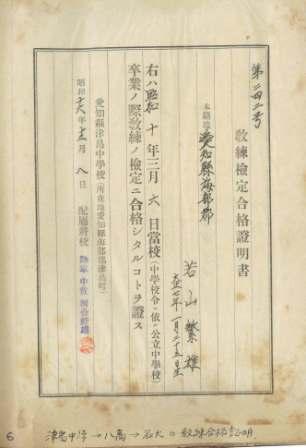 第二四二号
教練檢定合格證明書
本籍地 愛知縣海部郡
若山繁雄
大正七年一月二十五日生
右ハ昭和十年三月六日當校(中學校令ニ依ル公立中學校)
卒業ノ際教練ノ檢定ニ合格シタルコトヲ證ス
愛知縣津島中學校(所在地愛知縣海部郡津島町)
昭和十六年十二月八日
配屬將校 陸軍中佐
津島中学→八高→名大の教練合格証明
6